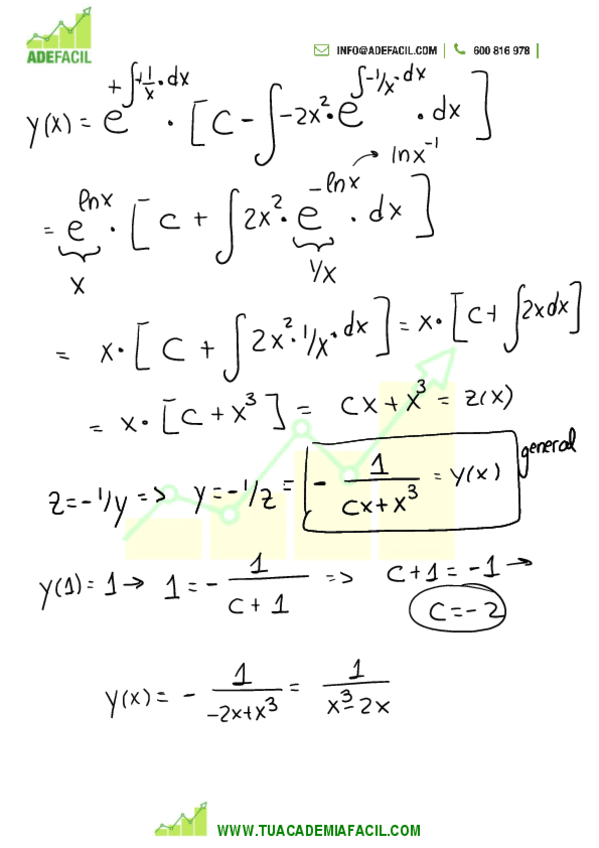 ADEFACIL
INFO@ADEFACIL.COM | 600 816 978 |
y(x) = e^{+∫+1/x·dx} · [C - ∫-2x²·e^{∫-1/x·dx} · dx]
lnx⁻¹
= e^{lnx} · [C + ∫2x²·e^{-lnx} · dx]
x 1/x
= x·[C + ∫2x²·1/x·dx] = x·[C+ ∫2xdx]
= x·[C + x³] = Cx + x³ = z(x)
z=-1/y => y=-1/z = - 1/(Cx+x³) = y(x) general
y(1)=1 → 1 = - 1/(C+1) => C+1=-1 →
C=-2
y(x) = - 1/(-2x+x³) = 1/(x³-2x)
WWW.TUACADEMIAFACIL.COM